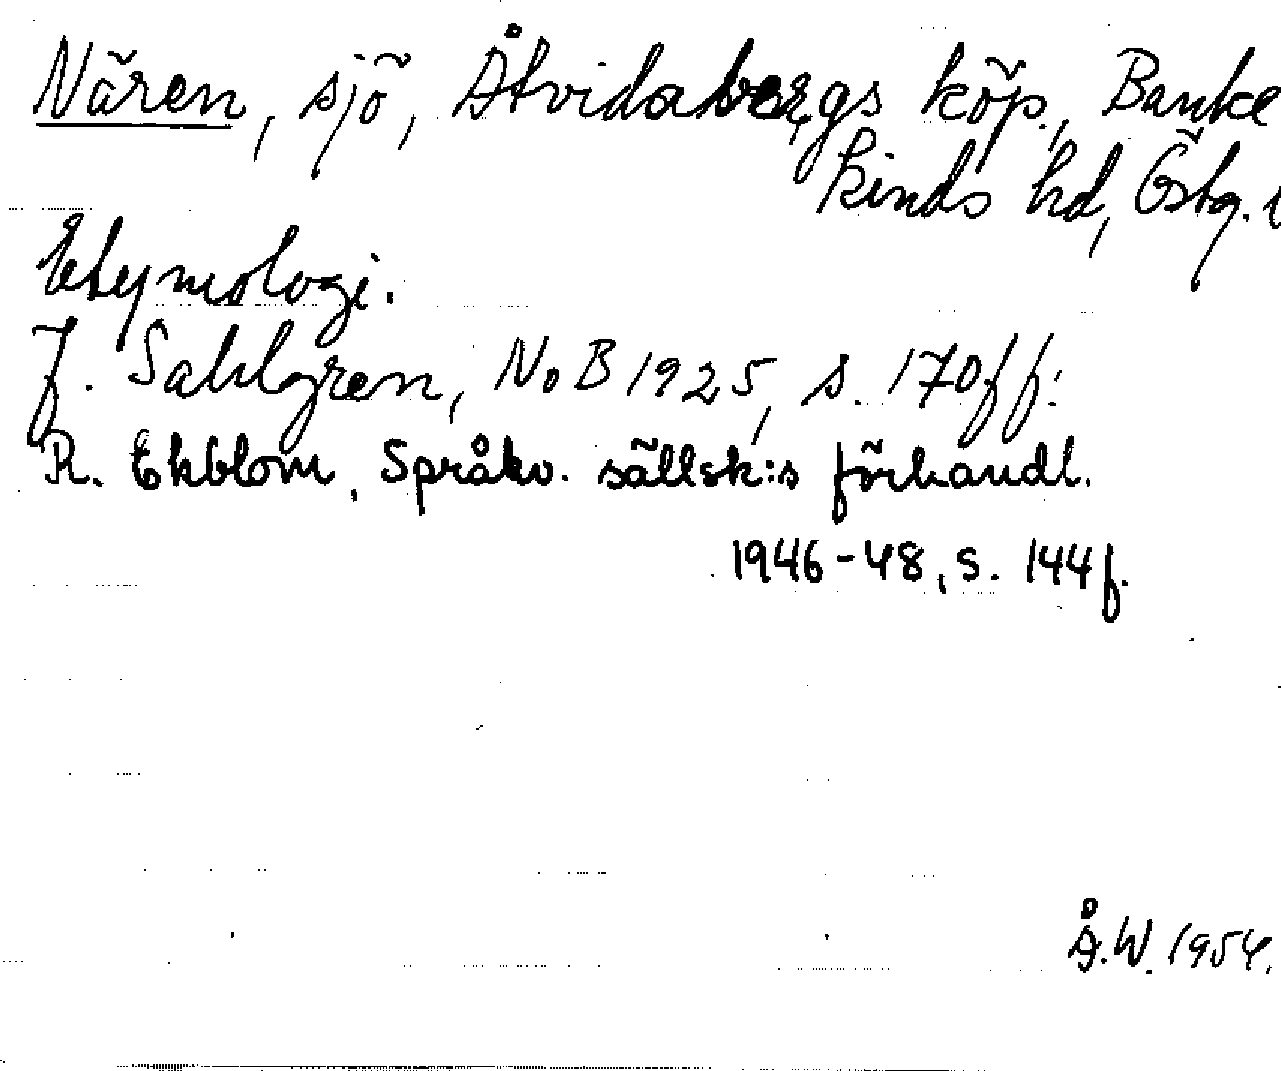 Nären, sjö, Åtvidabergs köp., Banke
kinds hd, Östg.
Etymologi.
J. Sahlgren, NoB 1925, s. 170 ff.
R. Ekblom, Språkv. sällsk:s förhandl.
1946-48, s. 144 f.
Å.W. 1954.